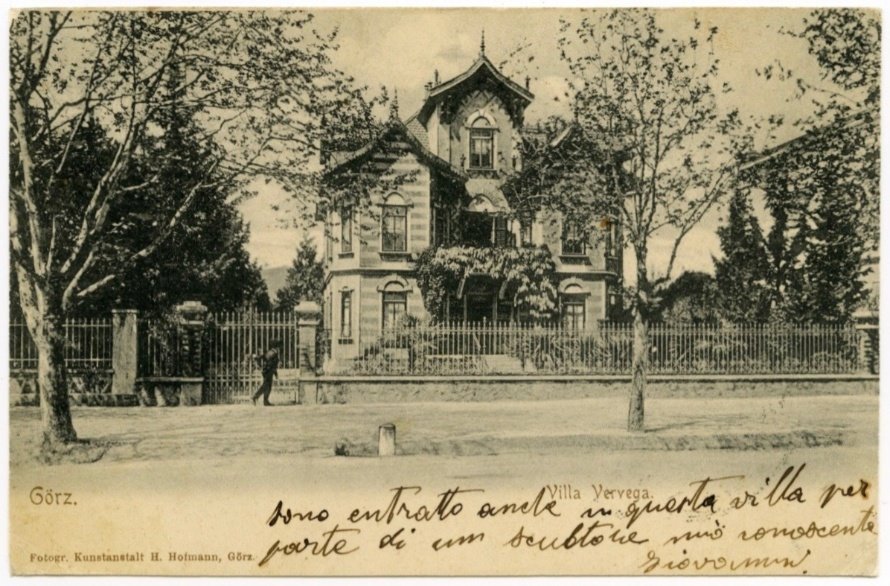 Görz.
Villa Vervega.
sono entratto anck in questa villa per
parte di un scultore mio conoscente
Giovanni.
Fotogr. Kunstanstalt H. Hofmann, Görz.